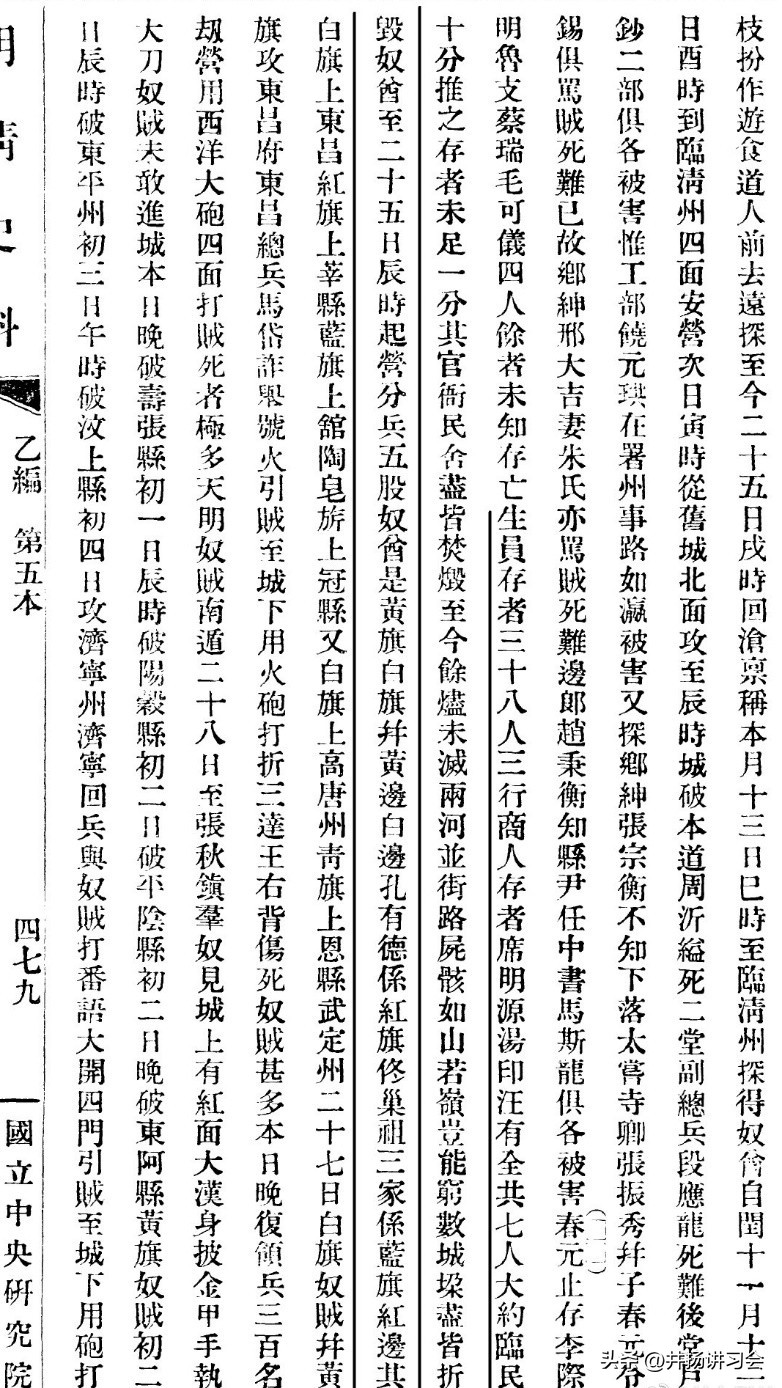 枝扮作遊食道人前去遠探至今二十五日戌時回滄禀稱本月十三日巳時至臨清州探得奴酋自閏十一月十二
日酉時到臨清州四面安營次日寅時從舊城北面攻至辰時城破本道周沂縊死二堂副總兵段應龍死難後堂戶
鈔二部俱各被害惟工部饒元珙在署州事路如瀛被害又探鄉紳張宗衡不知下落太常寺卿張振秀幷子春元爷
錫俱罵賊死難已故鄉紳邢大吉妻朱氏亦罵賊死難邊郎趙秉衡知縣尹任中書馬斯龍俱各被害春元止存李際
明魯支蔡瑞毛可儀四人餘者未知存亡生員存者三十八人三行商人存者席明源湯印汪有全共七人大約臨民
十分推之存者未足一分其官衙民舍盡皆焚燬至今餘燼未滅兩河並街路屍骸如山若嶺豈能窮數城垜盡皆折
毀奴酋至二十五日辰時起營分兵五股奴酋是黃旗白旗幷黃邊白邊孔有德係紅旗佟巢祖三家係藍旗紅邊其
白旗上東昌紅旗上莘縣藍旗上舘陶皂旂上冠縣又白旗上高唐州靑旗上恩縣武定州二十七日白旗奴賊幷黃
旗攻東昌府東昌總兵馬岱詐舉號火引賊至城下用火砲打折三達王右背傷死奴賊甚多本日晚復領兵三百名
刼營用西洋大砲四面打賊死者極多天明奴賊南遁二十八日至張秋鎮羣奴見城上有紅面大漢身披金甲手執
大刀奴賊未敢進城本日晚破壽張縣初一日辰時破陽穀縣初二日破平陰縣初二日晚破東阿縣黃旗奴賊初二
日辰時破東平州初三日午時破汶上縣初四日攻濟寧州濟寧回兵與奴賊打番語大開四門引賊至城下用砲打
明清史料 乙編 第五本 四七九 國立中央硏究院
头条@井杨讲习会